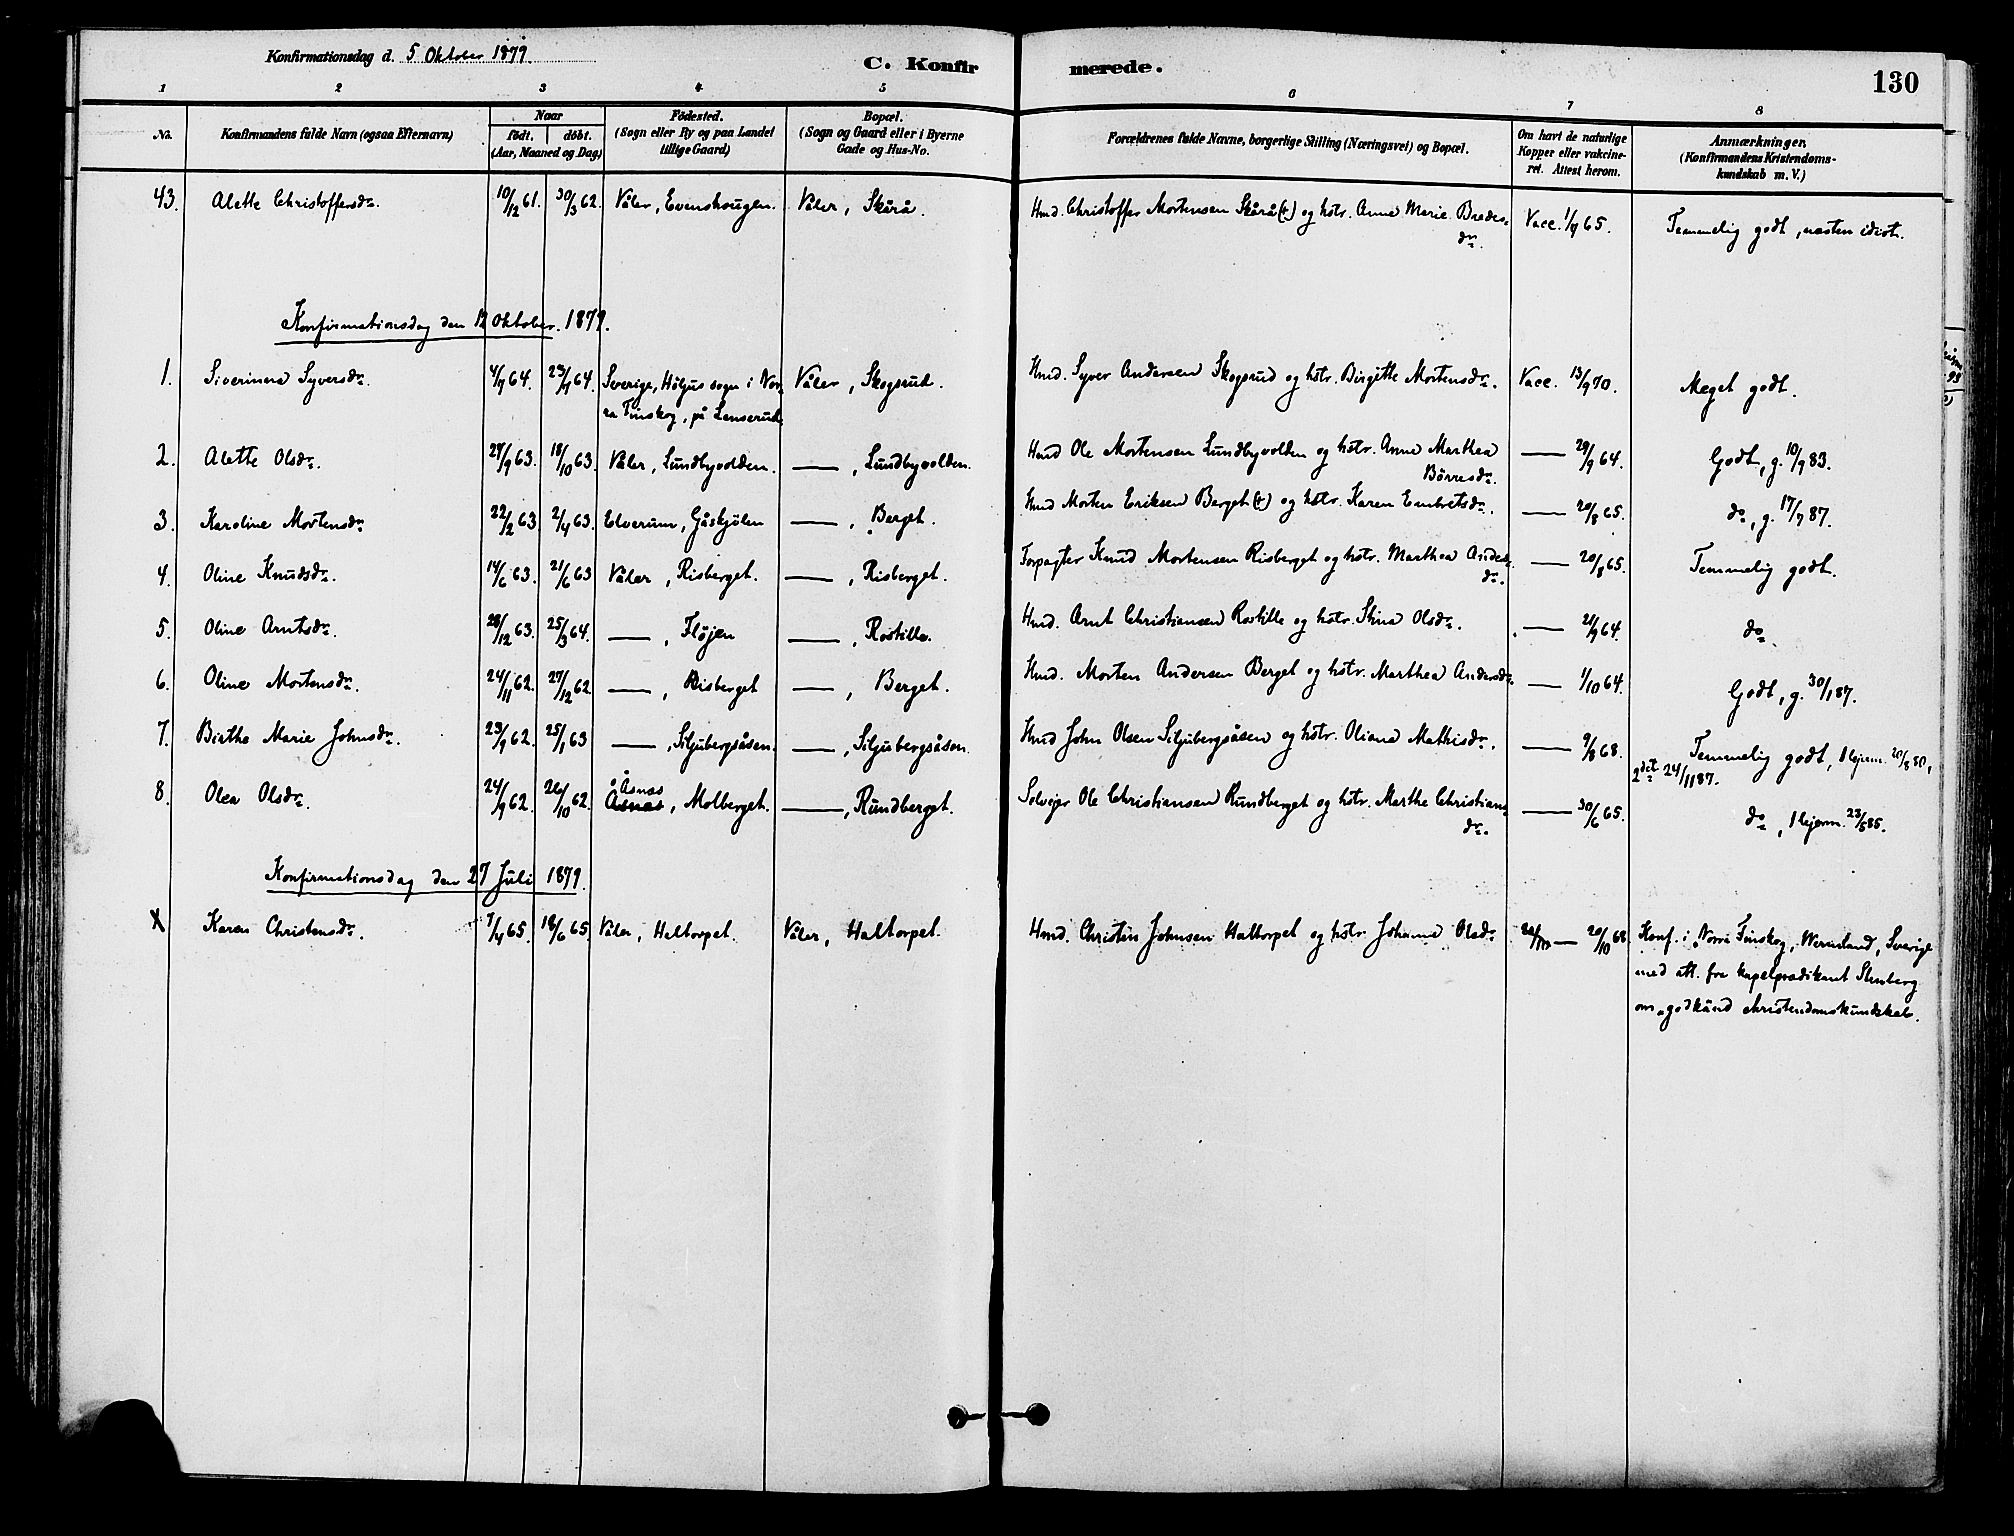 Konfirmationsdag d. 5 Oktober 1879
C. Konfirmerede.
130
1 2 3 4 5 6 7 8
No. Konfirmandens fulde Navn (ogsaa Efternavn) Naar födt. döbt. (Aar, Maaned og Dag) Födested. (Sogn eller By og paa Landet tillige Gaard) Bopæl. (Sogn og Gaard eller i Byerne Gade og Hus-No. Forældrenes fulde Navne, borgerlige Stilling (Næringsvei) og Bopæl. Om havt de naturlige Kopper eller vakcineret. Attest herom. Anmærkninger. (Konfirmandens Kristendomskundskab m. V.)
43. Alette Christoffersdr. 10/12 61. 30/3 62. Våler, Evenshougen. Våler, Skårå. Hmd. Christoffer Mortensen Skårå (+) og hstr. Anne Marie Bredesdr. Vacc. 1/9 65. Temmelig godt, næsten idiot.
Konfirmationsdag den 12 Oktober. 1879.
1. Siverinea Syversdr. 4/7 64. 23/7 64. Sverige, Höljus sogn i Norra Finskog, på Lenserud. Våler, Skogsrud. Hmd. Syver Andersen Skogsrud og hstr. Birgitte Mortensdr. Vacc. 13/9 70. Meget godt.
2. Alette Olsdr. 27/9 63. 18/10 63. Våler, Lundbyvolden. —, Lundbyvolden. Hmd Ole Mortensen Lundbyvolden og hstr. Anne Marthea Börresdr. — 29/9 64. Godt, g. 10/9 83.
3. Karoline Mortensdr. 22/2 63 2/4 63. Elverum, Gåskjölen —, Berget. Hmd Morten Eriksen Berget (+) og hstr. Karen Embretsdr. — 20/8 65. do, g. 17/7 87.
4. Oline Knudsdr. 14/6 63. 21/6 63 Våler, Risberget. —, Risberget. Forpagter Knud Mortensen Risberget og hstr. Marthea Andersdr. — 20/8 65. Temmelig godt.
5. Oline Arntsdr. 28/12 63. 25/3 64. —, Fløjen —, Rostille. Hmd. Arnt Christiansen Rostille og hstr. Stina Olsdr. — 21/9 64. do
6. Oline Mortensdr. 24/11 62. 27/12 62. —, Risberget —, Berget. Hmd. Morten Andersen Berget og hstr. Marthea Andersdr. — 1/10 64. Godt, g. 30/1 87.
7. Birthe Marie Johnsdr. 23/9 62. 25/1 63 —, Siljubergsåsen. —, Siljubergsåsen. Hmd John Olsen Siljubergsåsen og hstr. Oliana Mathisdr. — 9/8 68. Temmelig godt, 1 lysn. 20/8 80, 2det 24/11 87.
8. Olea Olsdr. 24/9 62. 26/10 62. Åsnæs, Molberget. —, Rundberget. Selvejer Ole Christiansen Rundberget og hstr. Marthe Christiansdr. — 30/6 65. do, 1 lysn. 23/5 85.
Konfirmationsdag den 27 Juli 1879.
X Karen Christensdr. 7/4 65. 18/6 65. Våler, Haltorpet. Våler, Haltorpet. Hmd. Christen Johnsen Haltorpet og hstr. Johanne Olsdr. — 20/10 68 Konf. i Norra Finskog, Wermland, Sverige
med att. fra kapelprædikant Stenberg
om „godkänd christendomskundskab.